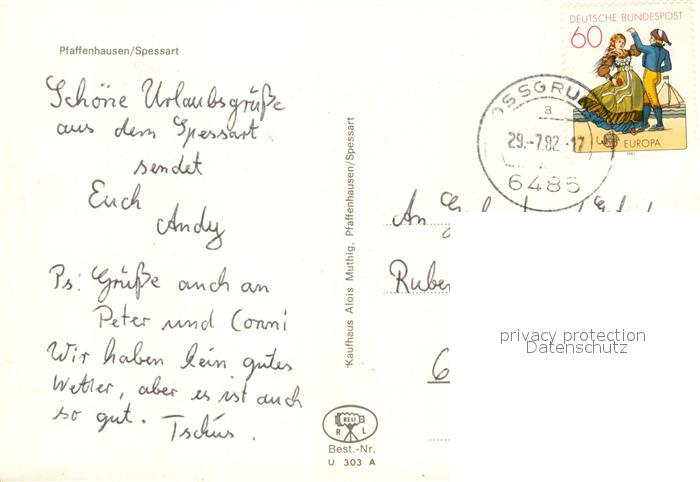 Pfaffenhausen/Spessart
Schöne Urlaubsgrüße
aus dem Spessart
sendet
Euch
Andy
Ps: Grüße auch an
Peter und Conni
Wir haben kein gutes
Wetter, aber es ist auch
so gut. Tschüs.
Kaufhaus Alois Muthig, Pfaffenhausen/Spessart
RELI
R L
Best.-Nr.
U 303 A
DEUTSCHE BUNDESPOST
60
EUROPA
1981
OSSGRU
a
29.-7.82-17
6485
An
Ruber
6
privacy protection
Datenschutz